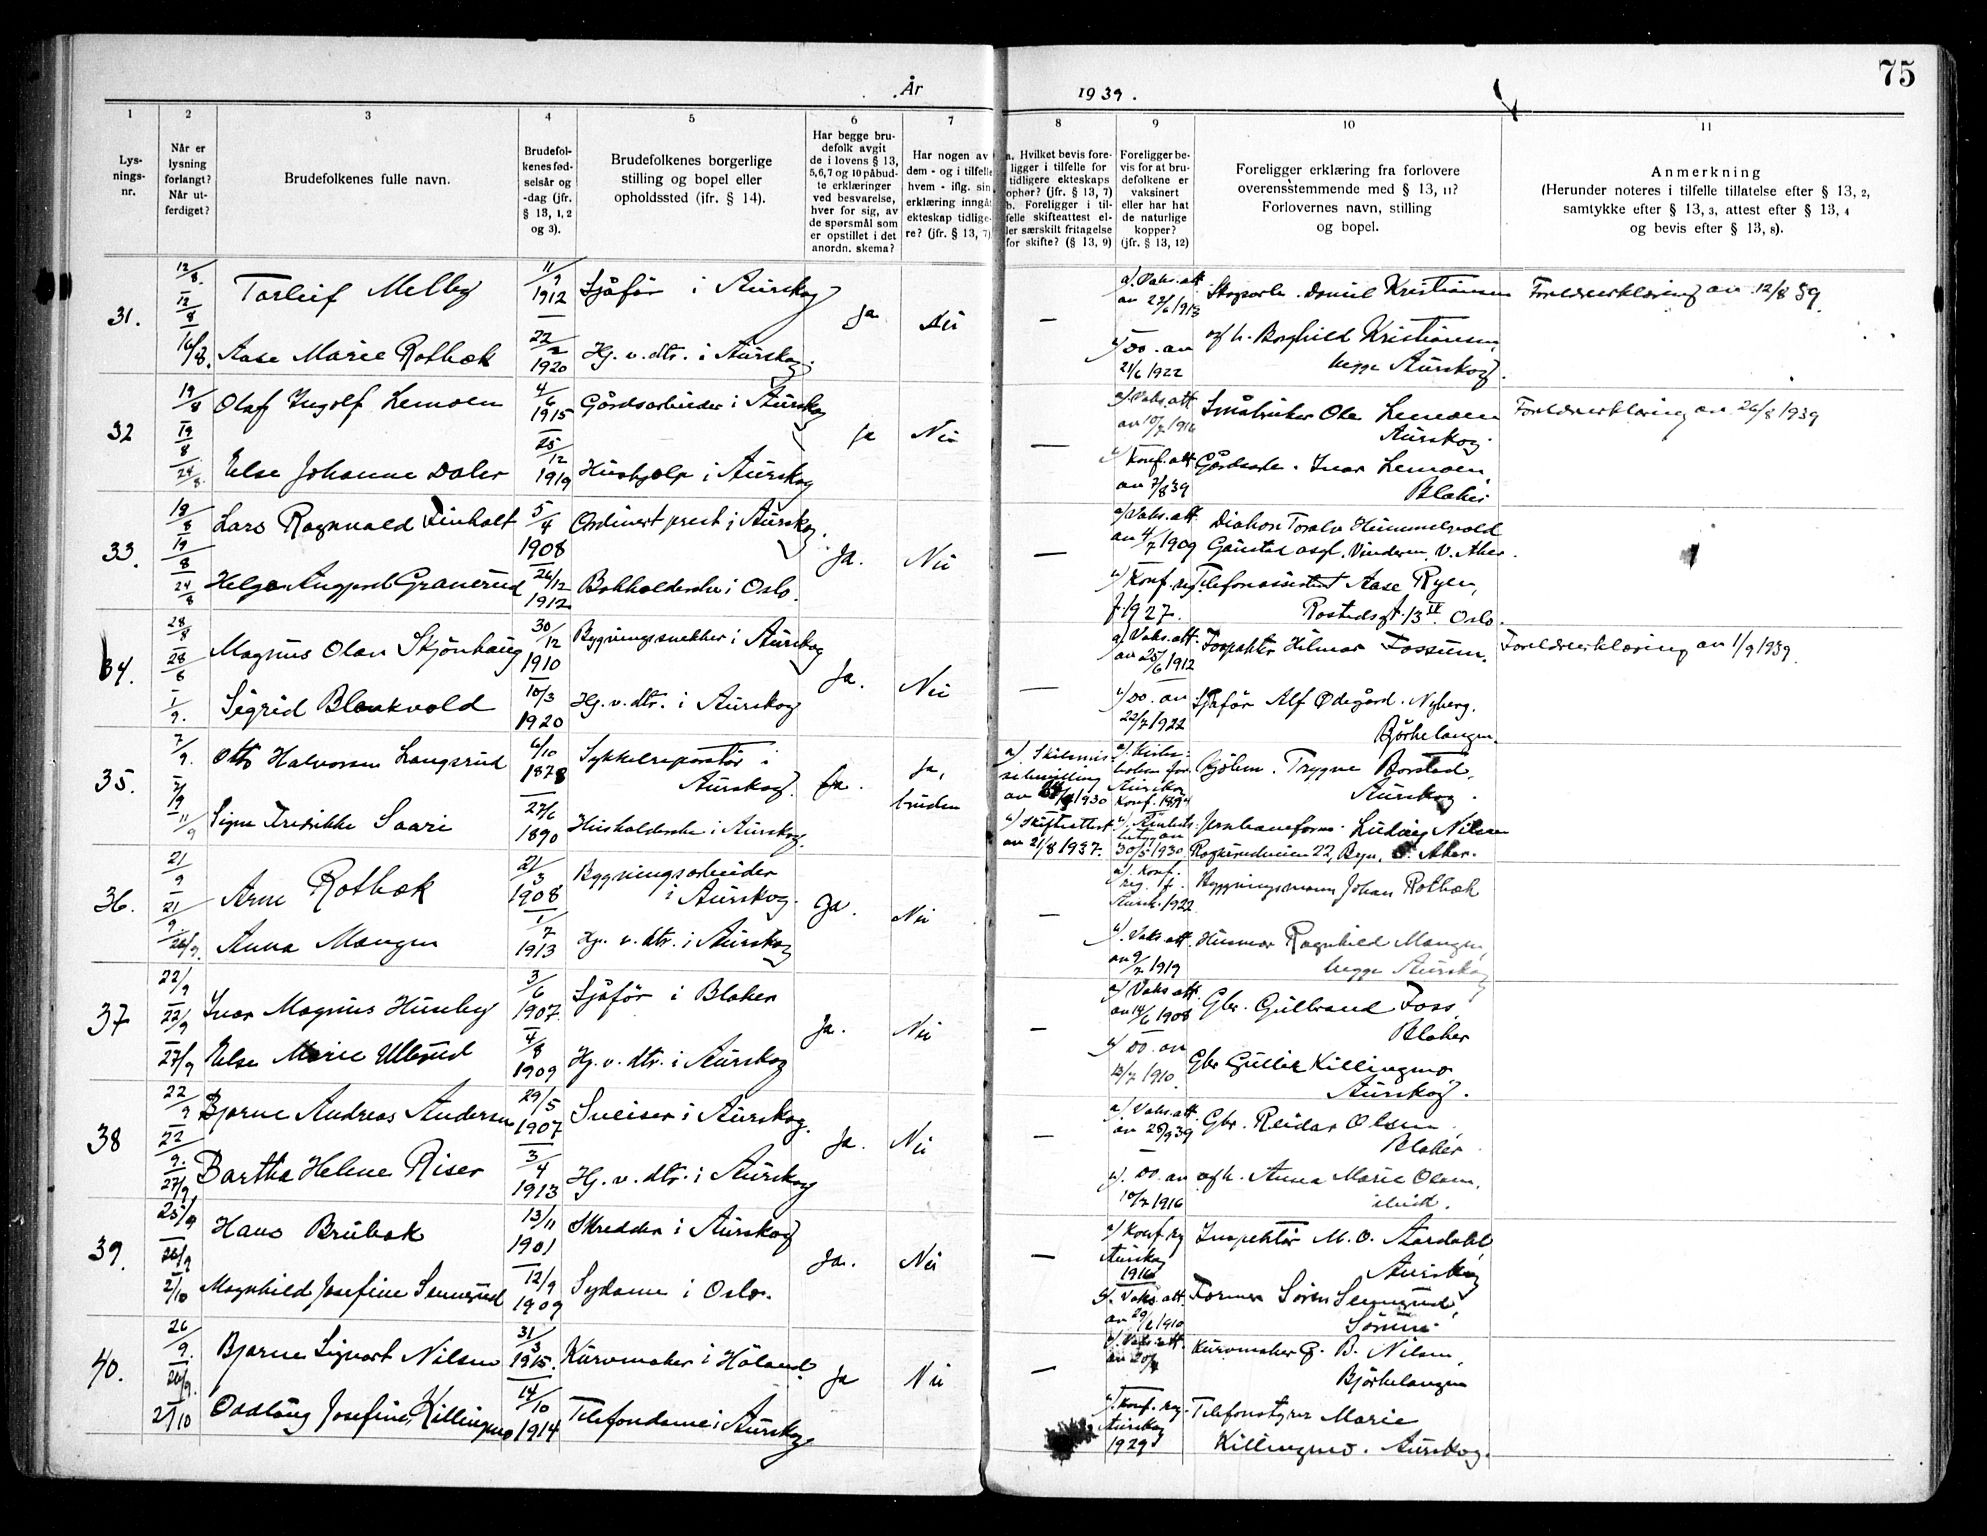 År 1939.
75
1
2
3
4
5
6
7
8
9
10
11
Lys-
nings-
nr.
Når er
lysning
forlangt?
Når ut-
ferdiget?
Brudefolkenes fulle navn.
Brudefol-
kenes fød-
selsår og
-dag (jfr.
§ 13, 1, 2
og 3).
Brudefolkenes borgerlige
stilling og bopel eller
opholdssted (jfr. § 14).
Har begge bru-
defolk avgit
de i lovens § 13,
5,6,7 og 10 påbud-
te erklæringer
ved besvarelse,
hver for sig, av
de spørsmål som
er opstillet i det
anordn. skema?
Har nogen av
dem - og i tilfelle
hvem - iflg. sin
erklæring inngå
ekteskap tidlige-
re? (jfr. § 13, 7)
a. Hvilket bevis fore-
ligger i tilfelle for
tidligere ekteskaps
ophør? (jfr. § 13, 7)
b. Foreligger i til-
felle skifteattest el-
ler særskilt fritagelse
for skifte? (§ 13, 9)
Foreligger be-
vis for at bru-
defolkene er
vaksinert
eller har hat
de naturlige
kopper?
(jfr. § 13, 12)
Foreligger erklæring fra forlovere
overensstemmende med § 13, 11?
Forlovernes navn, stilling
og bopel.
Anmerkning
(Herunder noteres i tilfelle tillatelse efter § 13, 2,
samtykke efter § 13, 3, attest efter § 13, 4
og bevis efter § 13, 8).
31.
12/8.
12/8
16/8.
Torleif Melby
11/9 1912
Sjåfør i Aurskog
Ja
Nei
—
a) Vaks.att
av 22/6 1913
Skogsarb. Daniel Kristiansen
Foreldreerklæring av 12/8 39
Aase Marie Rotbæk
22/2 1920
Hj. v. dtr. i Aurskog.
b) do. av
21/6 1922
og h. Borghild Kristiansen,
begge Aurskog.
32
19/8
19/8
24/8
Olaf Ingolf Lemoen
4/6 1915
Gårdsarbeider i Aurskog
Ja
Nei
—
a) Vaks.att
av 10/7 1916
Småbruker Ole Lemoen
Aurskog.
Foreldreerklæring av 26/8 1939
Else Johanne Daler
25/12 1919
Hushjelp i Aurskog
b) Konf.att
av 7/8 39
Gårdsarb. Ivar Lemoen,
Blaker
33.
18/8
19/8
24/8
Lars Ragnvald
5/4 1908
Ordinert prest i Aurskog.
Ja.
Nei
—
a) Vaks.att
av 4/7 1909
Diakon Toralv Himmelvold
Gaustad asyl, Vinderen, V. Aker.
Helga Granerud
26/12 1912
Bokholderske i Oslo.
b) Konf.reg.
f. 1927.
Telefonassistent Aase Ryen,
Rostedsgt. 13 IV Oslo.
34.
28/8
28/8
1/9.
Magnus Olav Skjønhaug
30/12 1910
Bygningssnekker i Aurskog
Ja.
Nei
—
a) Vaks.att.
av 25/6 1912
Forpakter Hilmar Fossum.
Foreldreerklæring av 1/9 1939
Sigrid Blenkvold
10/3 1920
Hj. v. dtr. i Aurskog
b) do. av
22/7 1922
Sjåfør Alf Ødegård. Nyberg.
Bjørkelangen.
35.
7/9.
7/9
11/9
Otto Halvorsen Langsrud
6/10 1878
Sykkelreparatør i
Aurskog.
Ja.
Ja,
bruden
a). Skilsmis-
sebevilling
1930
Aurskog
Konf. 1894
Trygve Borstad,
Aurskog.
Signe Fredrikke Saari
27/6 1890
Husholderske i Aurskog.
b) Skifteattest
av 21/8 1937.
30/5 1930
Jernbaneform. Ludvig Nilsen
22, Bryn, Ø. Aker.
36.
21/9
21/9
26/9.
Arne Rotbæk
21/3 1908
Bygningsarbeider
i Aurskog.
Ja.
Nei
—
a). Konf.
reg. f.
Aursk. 1922
Bygningsmann Johan Rotbæk
Anna Mangen
1/7 1913
Hj. v. dtr. i Aurskog
b). Vaks.att.
av 9/7 1919
Husmor Ragnhild Mangen,
begge Aurskog
37
22/9
22/9
27/9
Ivar Magnus Huseby
3/6 1907.
Sjåfør i Blaker
Ja.
Nei
—
a) Vaks.att
av 14/6 1908
Gbr. Gulbrand Foss,
Blaker
Else Marie Ullerud
4/8 1909
Hj. v. dtr. i Aurskog
b) do. av
13/7 1910.
Gbr Gullik Killingmo
Aurskog.
38
22/9
22/9.
27/9
Bjarne Andreas Andersen
29/5 1907
Sveiser i Aurskog.
Ja.
Nei
—
a). Vaks.att.
av 28/9 39
Gbr. Reidar Olsen,
Blaker.
Bartha Helene Riser
3/4 1913
Hj. v. dtr. i Aurskog
b). do. av
10/7 1916
og h. Anna Marie Olsen,
ibid.
39.
25/9
26/9
2/10
Hans Brubak
13/11 1901
Skredder i Aurskog
Ja.
Nei
—
a) Konf.reg
Aurskog
1916
Inspektør M. O. Aardahl
Aurskog
Magnhild Josefine Sennerud
12/9 1909
Sydame i Oslo.
b). Vaks.att.
av 29/6 1910
Former Søren Sennerud,
Sørum.
40.
26/9.
26/9.
2/10
Bjarne Sigvart Nilsen
31/3 1915.
Kurvmaker i Høland.
Ja
Nei
—
a). Vaks.att.
Kurvmaker G. B. Nilsen,
Bjørkelangen
Oddlaug Josefine Killingmo
14/10 1914
Telefondame i Aurskog.
b). Konf.reg.
Aurskog
1929
Telefonstyrer Marie
Killingmo. Aurskog.